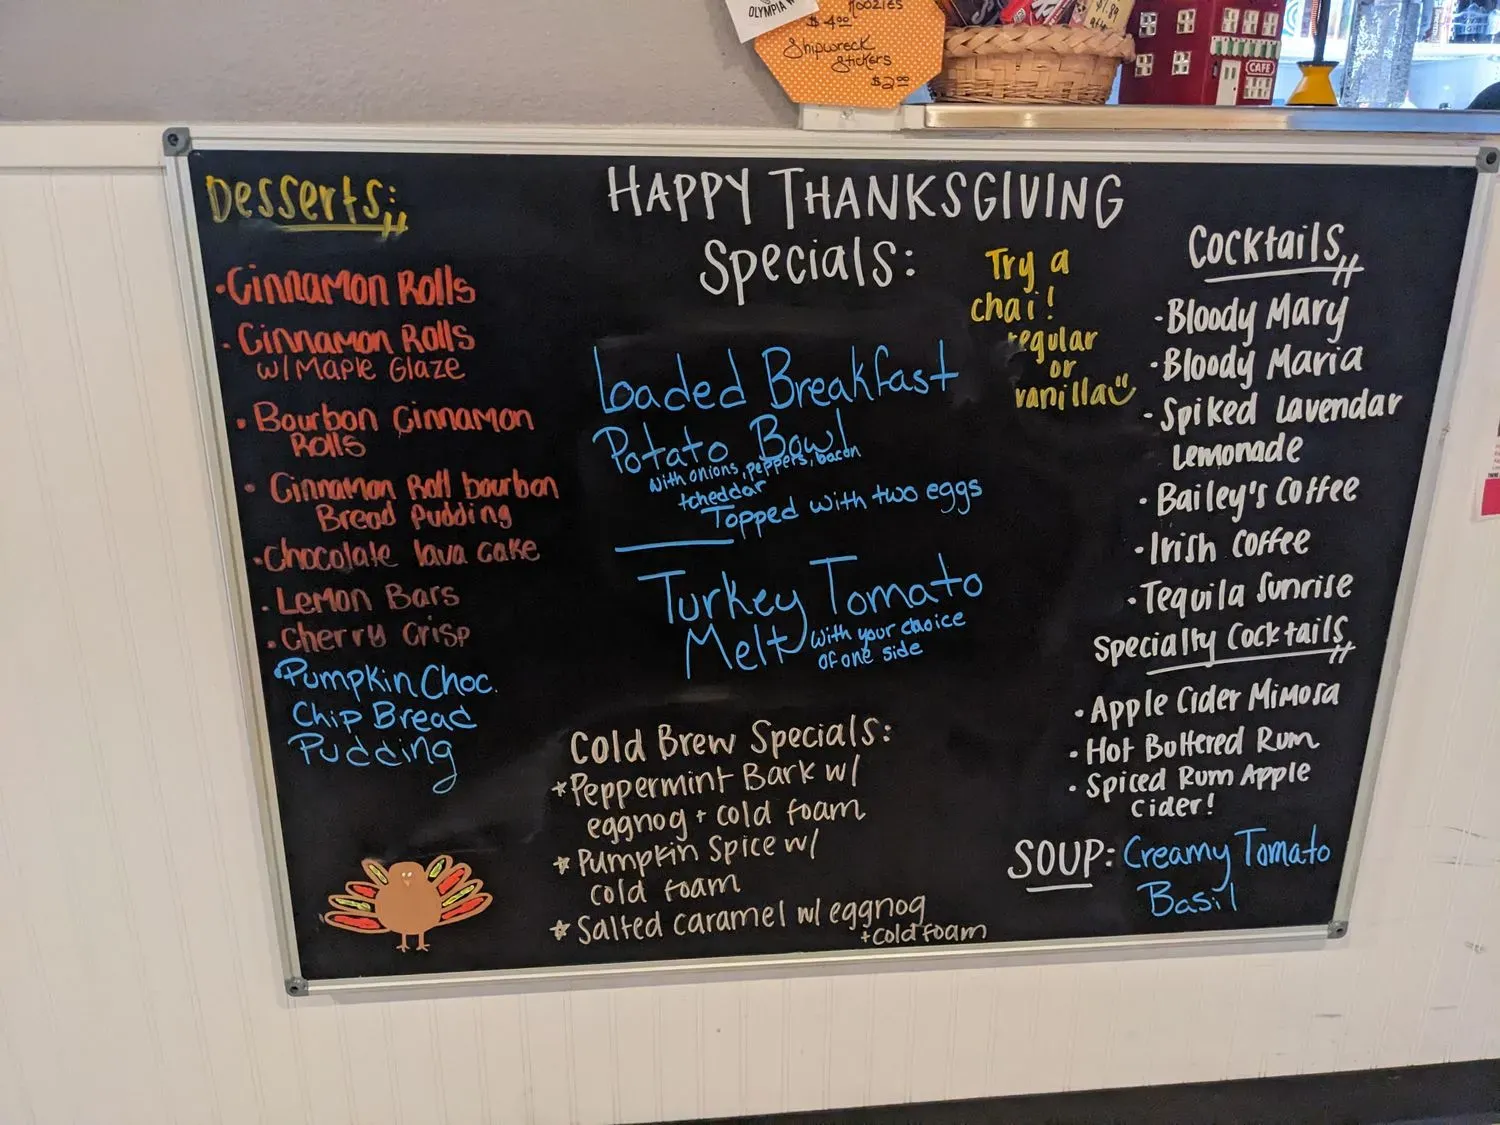 OLYMPIA
KOOZIES
$4.00
Shipwreck
Stickers
$2.00
$1.89
CAFE
HAPPY THANKSGIVING
Specials:
Desserts:
• Cinnamon Rolls
• Cinnamon Rolls
w/ Maple Glaze
• Bourbon Cinnamon
Rolls
• Cinnamon Roll bourbon
Bread Pudding
• Chocolate lava cake
• Lemon Bars
• Cherry Crisp
• Pumpkin Choc.
Chip Bread
Pudding
Loaded Breakfast
Potato Bowl
with onions, peppers, bacon
+cheddar
Topped with two eggs
Turkey Tomato
Melt with your choice
of one side
Cold Brew Specials:
* Peppermint Bark w/
eggnog + cold foam
* Pumpkin Spice w/
cold foam
* Salted caramel w/ eggnog
+cold foam
Try a
chai!
regular
or
vanilla
Cocktails
• Bloody Mary
• Bloody Maria
• Spiked Lavendar
Lemonade
• Bailey's Coffee
• Irish Coffee
• Tequila Sunrise
Specialty Cocktails
• Apple Cider Mimosa
• Hot Buttered Rum
• Spiced Rum Apple
Cider!
SOUP: Creamy Tomato
Basil